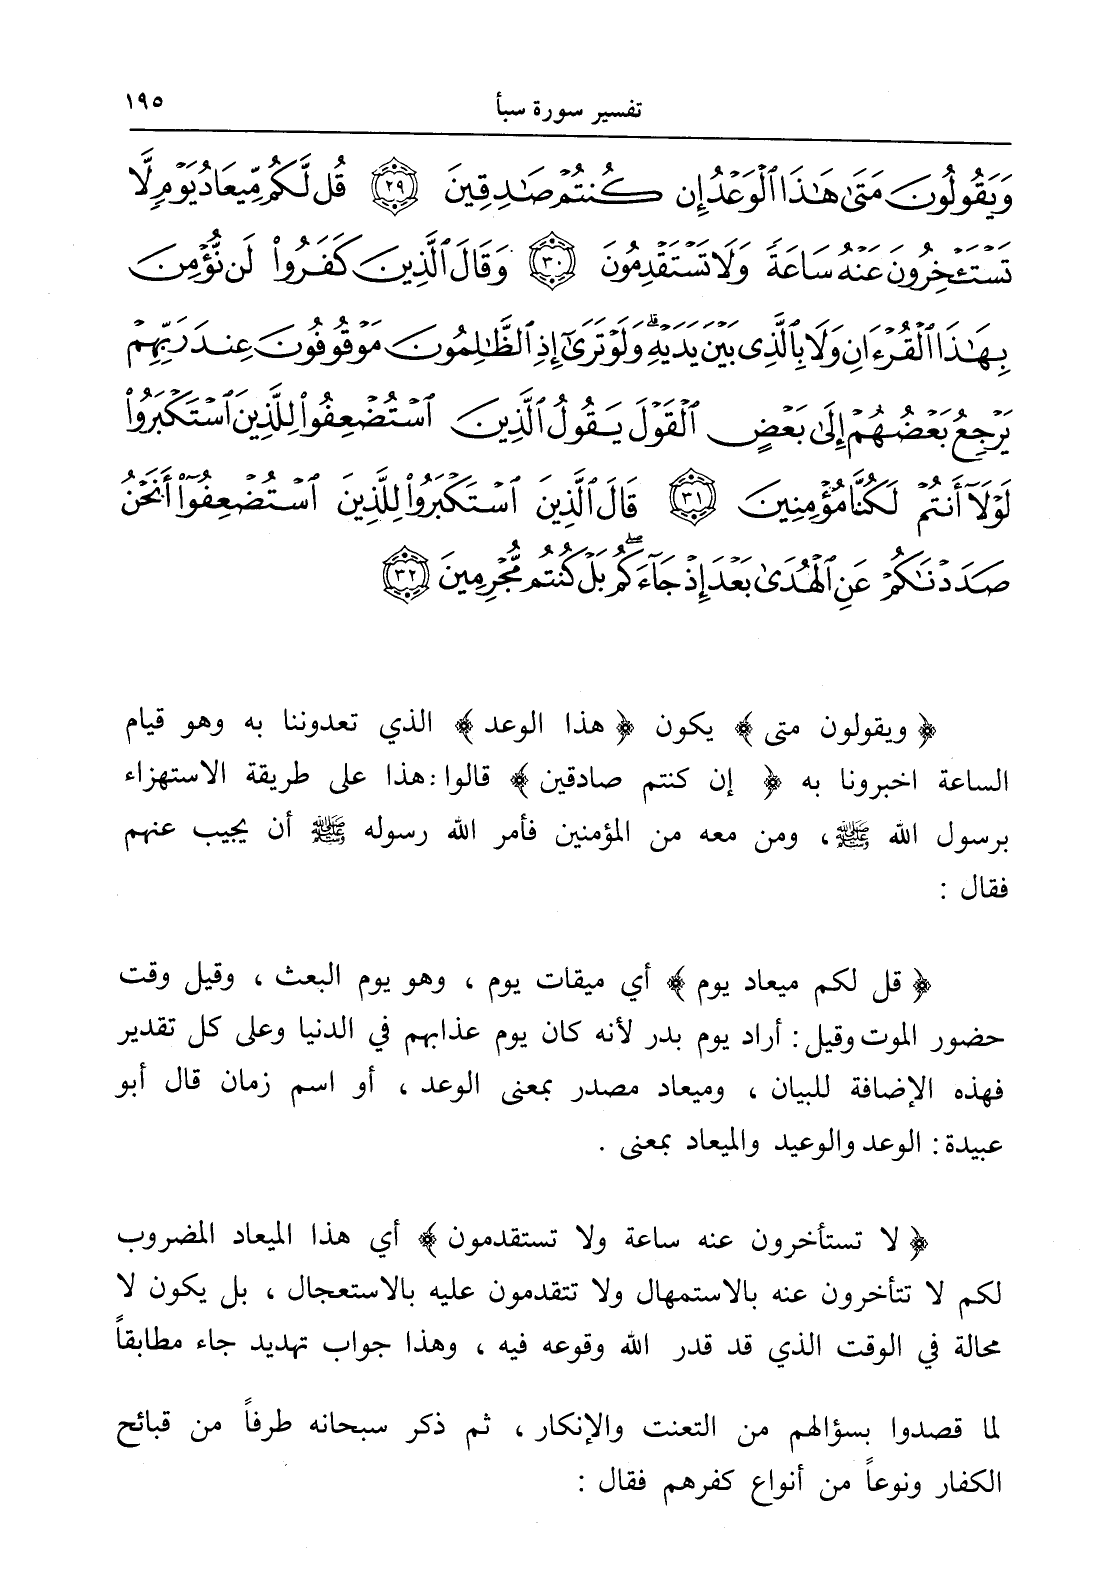 تفسير سورة سبأ ١٩٥
وَيَقُولُونَ مَتَىٰ هَٰذَا ٱلْوَعْدُ إِن كُنتُمْ صَٰدِقِينَ ٢٩ قُل لَّكُم مِّيعَادُ يَوْمٍ لَّا
تَسْتَـْٔخِرُونَ عَنْهُ سَاعَةً وَلَا تَسْتَقْدِمُونَ ٣٠ وَقَالَ ٱلَّذِينَ كَفَرُوا۟ لَن نُّؤْمِنَ
بِهَٰذَا ٱلْقُرْءَانِ وَلَا بِٱلَّذِى بَيْنَ يَدَيْهِ ۗ وَلَوْ تَرَىٰٓ إِذِ ٱلظَّٰلِمُونَ مَوْقُوفُونَ عِندَ رَبِّهِمْ
يَرْجِعُ بَعْضُهُمْ إِلَىٰ بَعْضٍ ٱلْقَوْلَ يَقُولُ ٱلَّذِينَ ٱسْتُضْعِفُوا۟ لِلَّذِينَ ٱسْتَكْبَرُوا۟
لَوْلَآ أَنتُمْ لَكُنَّا مُؤْمِنِينَ ٣١ قَالَ ٱلَّذِينَ ٱسْتَكْبَرُوا۟ لِلَّذِينَ ٱسْتُضْعِفُوٓا۟ أَنَحْنُ
صَدَدْنَٰكُمْ عَنِ ٱلْهُدَىٰ بَعْدَ إِذْ جَآءَكُم ۖ بَلْ كُنتُم مُّجْرِمِينَ ٣٢
﴿ ويقولون متى ﴾ يكون ﴿ هذا الوعد ﴾ الذي تعدوننا به وهو قيام
الساعة اخبرونا به ﴿ إن كنتم صادقين ﴾ قالوا : هذا على طريقة الاستهزاء
برسول الله ﷺ ، ومن معه من المؤمنين فأمر الله رسوله ﷺ أن يجيب عنهم
فقال :
﴿ قل لكم ميعاد يوم ﴾ أي ميقات يوم ، وهو يوم البعث ، وقيل وقت
حضور الموت وقيل : أراد يوم بدر لأنه كان يوم عذابهم في الدنيا وعلى كل تقدير
فهذه الإضافة للبيان ، وميعاد مصدر بمعنى الوعد ، أو اسم زمان قال أبو
عبيدة : الوعد والوعيد والميعاد بمعنى .
﴿ لا تستأخرون عنه ساعة ولا تستقدمون ﴾ أي هذا الميعاد المضروب
لكم لا تتأخرون عنه بالاستمهال ولا تتقدمون عليه بالاستعجال ، بل يكون لا
محالة في الوقت الذي قد قدر الله وقوعه فيه ، وهذا جواب تهديد جاء مطابقاً
لما قصدوا بسؤالهم من التعنت والإنكار ، ثم ذكر سبحانه طرفاً من قبائح
الكفار ونوعاً من أنواع كفرهم فقال :